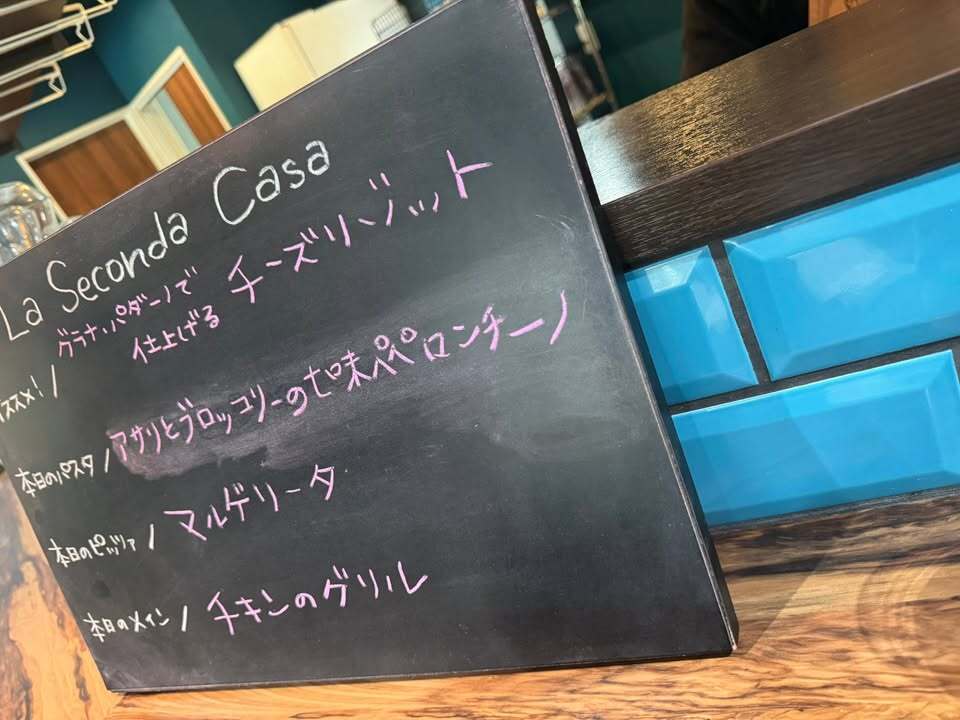 La Seconda Casa
グラナ・パダーノで
仕上げる チーズリゾット
オススメ! /
本日のパスタ / アサリとブロッコリーの七味ペペロンチーノ
本日のピッツァ / マルゲリータ
本日のメイン / チキンのグリル